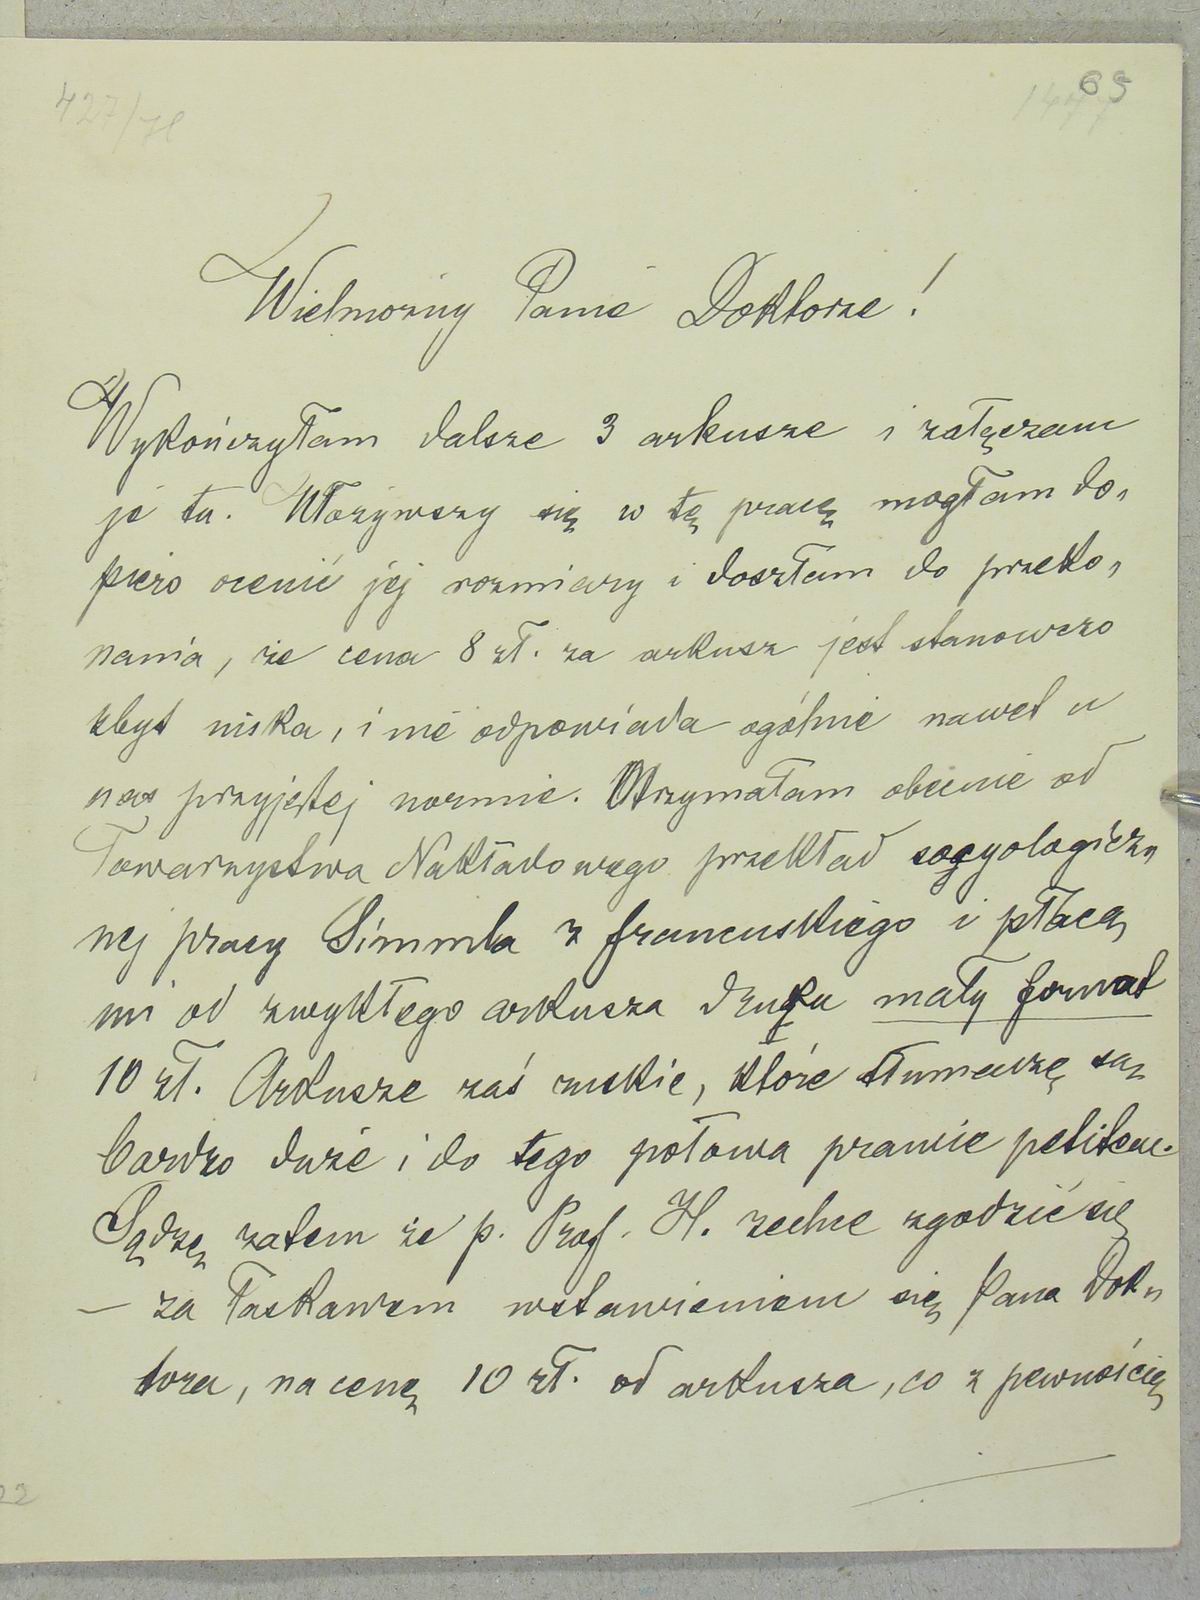 427/
65
Wielmożny Panie Doktorze!
Wykończyłam dalsze 3 arkusze i załączam
je tu. Włożywszy się w tę pracę mogłam do„
piero ocenić jej rozmiary i doszłam do przeko„
nania, że cena 8 zł. za arkusz jest stanowczo
zbyt niska, i nie odpowiada ogólnie nawet u
nas przyjętej normie. Otrzymałam obecnie od
Towarzystwa Nakładowego przekład socyologicz„
nej pracy Simmla z francuskiego i płacą
mi od zwykłego arkusza druku mały format
10 zł. Arkusze zaś ruskie, które tłumaczę są
bardzo duże i do tego połowa prawie petitem.
Sądzę zatem że p. Prof. H. zechce zgodzić się
– za łaskawem wstawieniem się Pana Dok„
tora, na cenę 10 zł. od arkusza, co z pewnością
22